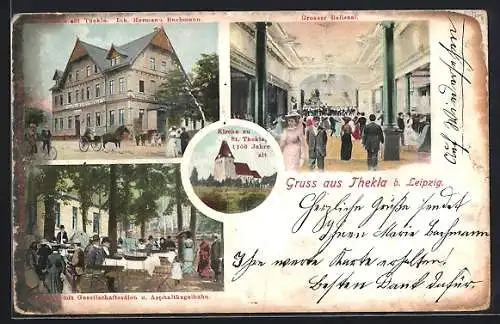 zu St. Thekla. Inh. Hermann Bachmann
Grosser Ballsaal.
Kirche zu
St. Thekla,
1500 Jahre
alt.
Gruss aus Thekla b. Leipzig.
mit Gesellschaftssälen u. Asphaltkegelbahn.
Herzliche Grüße sendet
Ihnen Marie Bachmann
Ihre werte Karte erhalten.
besten Dank dafür.
Auf Wiedersehen